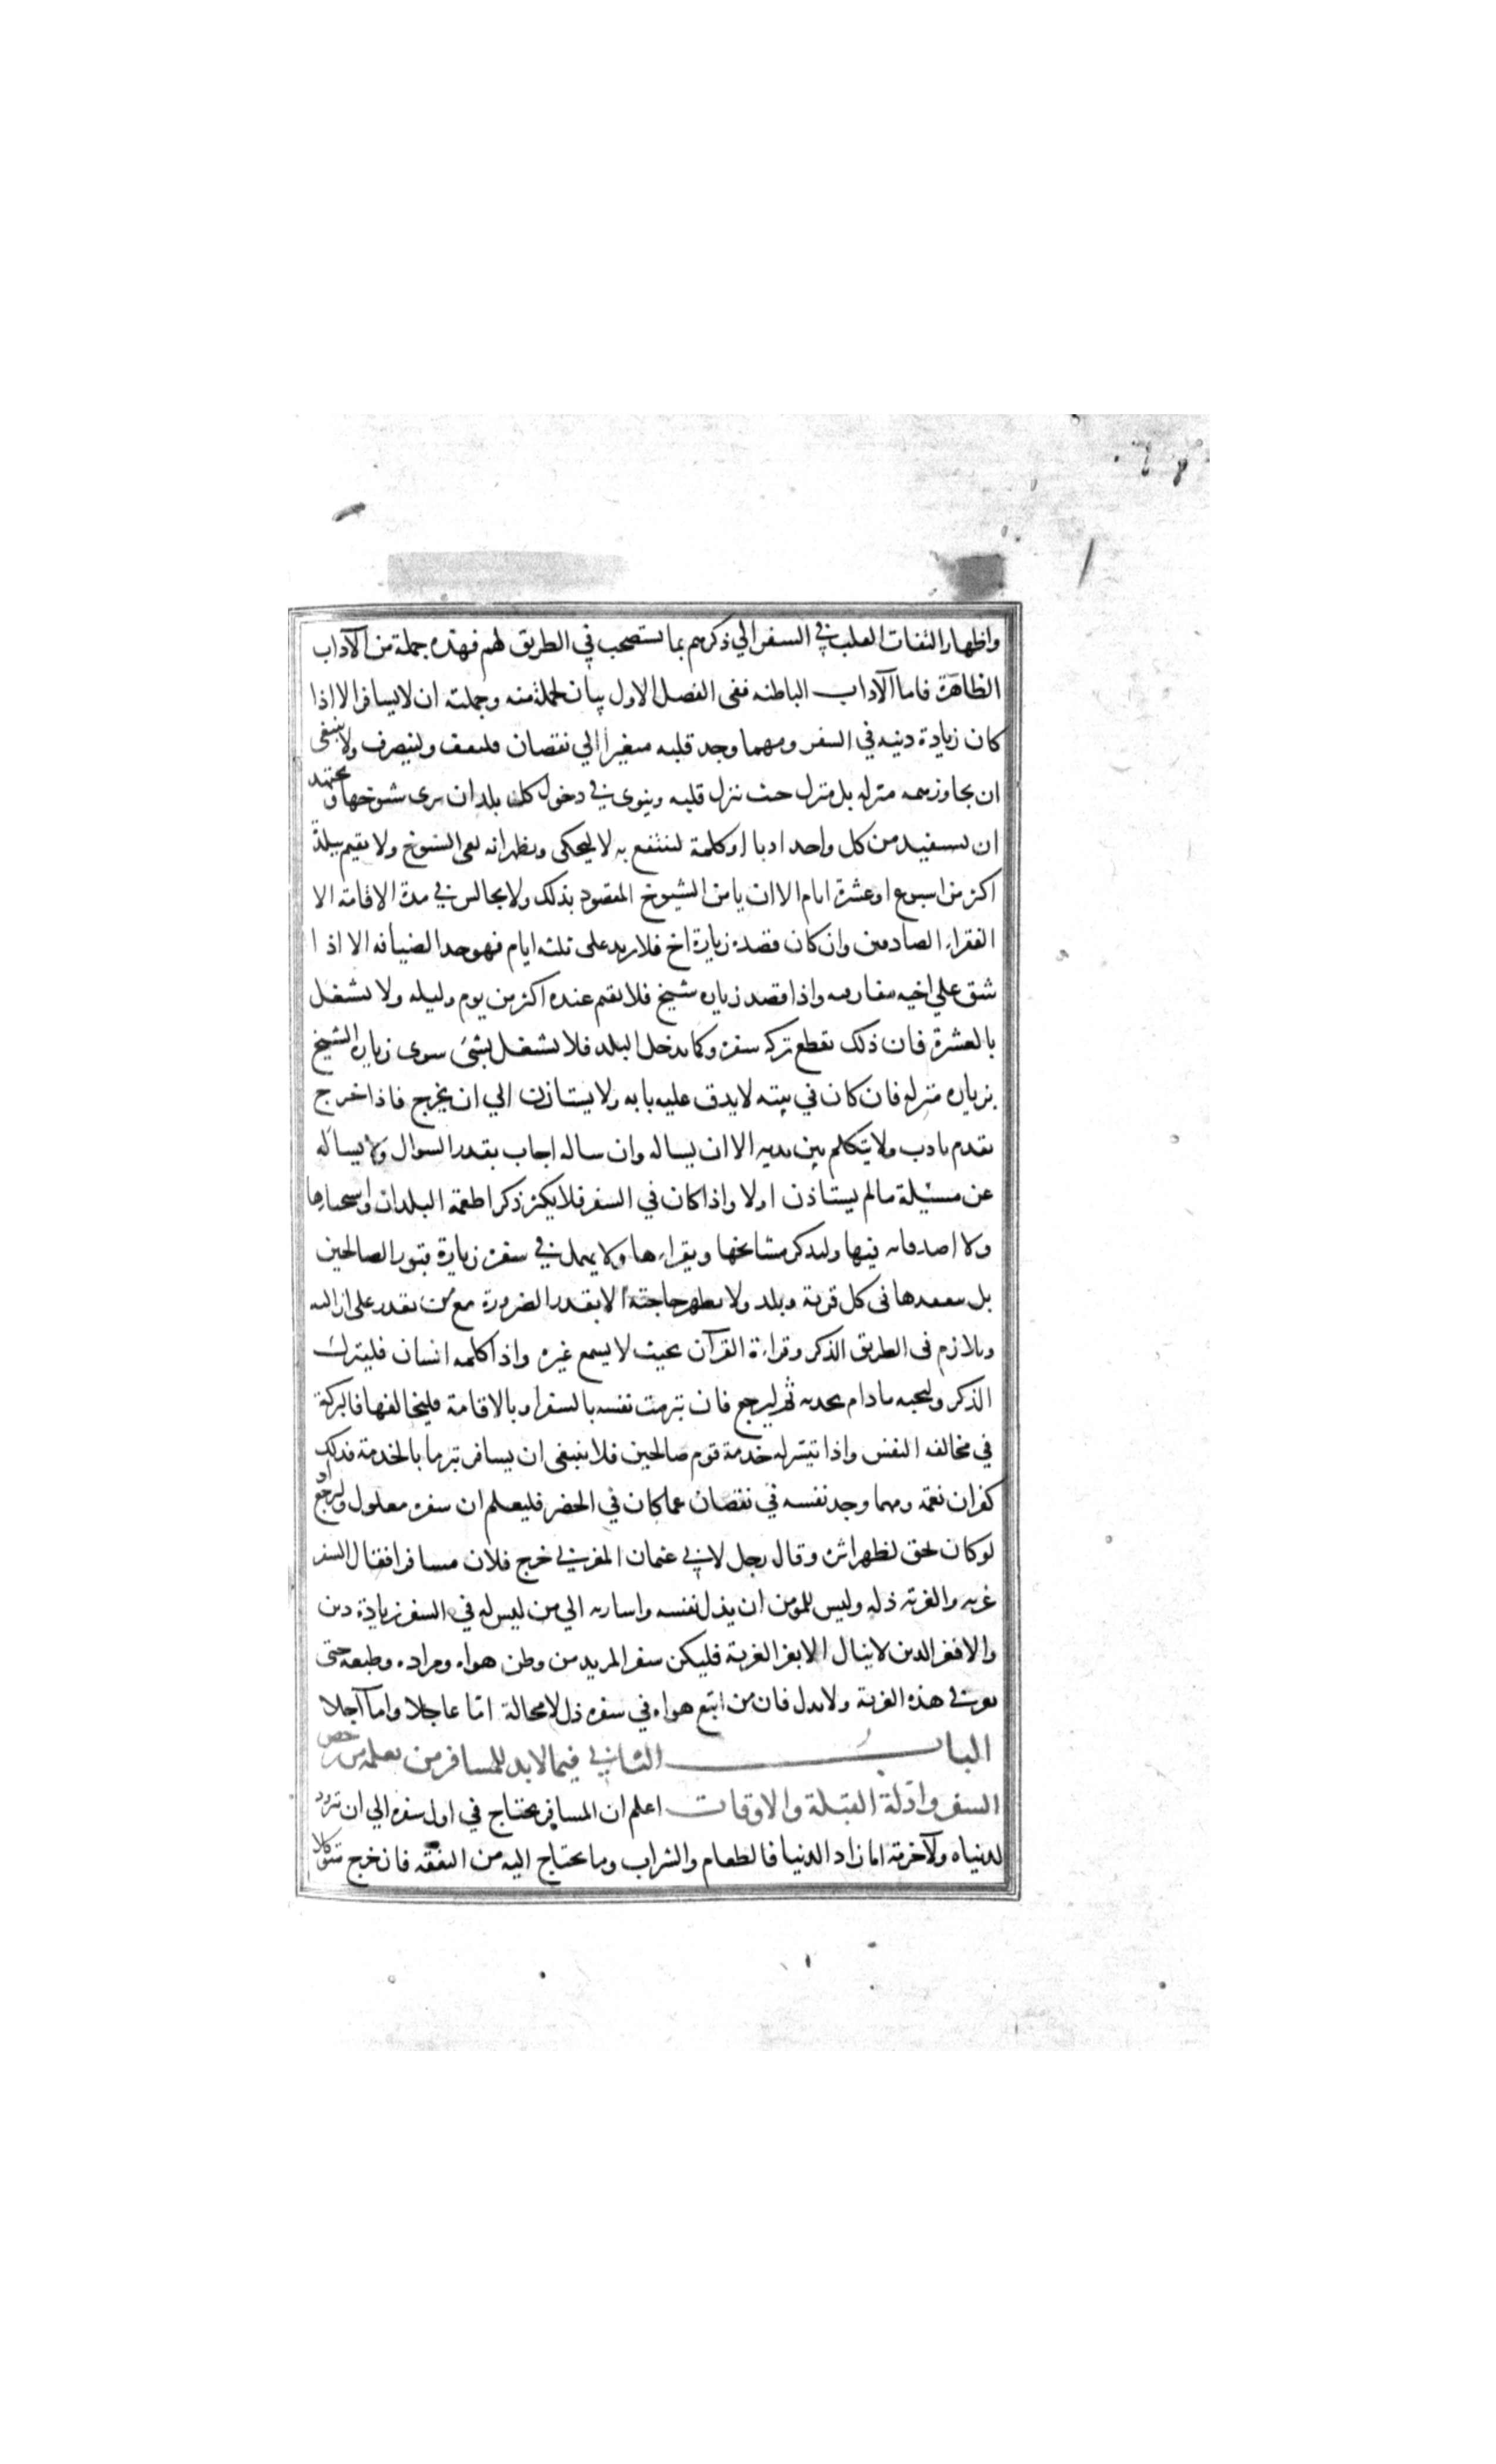 واظهار التفات القلب في السفر الي ذكرهم بما يستصحب في الطريق لهم فهذه جملة من الآداب
الظاهرة فاما الآداب الباطنه ففى الفصل الاول بيان لجملة منه وجملته ان لا يسافر الا اذا
كان زيادة دينه في السفر ومهما وجد قلبه متغيرا الي نقصان فليقف ولينصرف ولا ينبغى
ان يجاوز همه منزله بل ينزل حيث ينزل قلبه وينوى في دخول كل بلد ان يرى شيوخها ويجتهد
ان يستفيد من كل واحد ادبا او كلمة لينتفع به لا ليحكى ويظهر انه لقى الشيوخ ولا يقيم ببلدة
اكثر من اسبوع او عشرة ايام الا ان يامن الشيوخ المقصود بذلك ولا يجالس في مدة الاقامة الا
الفقراء الصادقين وان كان قصده زيارة اخ فلا يزيد على ثلثه ايام فهو حد الضيافه الا اذا
شق علي اخيه مفارقته واذا قصد زياره شيخ فلا يقيم عنده اكثر من يوم وليله ولا يشغل
بالعشرة فان ذلك يقطع بركه سفره وكما يدخل البلد فلا يشغل بشئ سوى زياره الشيخ
بزياره منزله فان كان في بيته لا يدق عليه بابه ولا يستاذن الي ان يخرج فاذا خرج
تقدم بادب ولا يتكلم بين يديه الا ان يساله وان ساله اجاب بقدر السوال ولا يساله
عن مسئيلة مالم يستاذن اولا واذا كان في السفر فلا يكثر ذكر اطعمة البلدان واسخيائها
ولا اصدقائه فيها وليذكر مشايخها وفقراءها ولا يهمل في سفره زيارة قبور الصالحين
بل يتفقدها فى كل قرية وبلد ولا يظهر حاجته الا بقدر الضرورة مع من يقدر على ازالته
ويلازم فى الطريق الذكر وقراءة القرآن بحيث لا يسمع غيره واذا كلمه انسان فليترك
الذكر وليجبه مادام يحدثه ثم ليرجع فان تبرمت نفسه بالسفر او بالاقامة فليخالفها فالبركة
في مخالفه النفس واذا تيسّر له خدمة قوم صالحين فلا ينبغى ان يسافر تبرما بالخدمة فذلك
كفران نعمه ومهما وجد نفسه في نقصان عما كان في الحضر فليعلم ان سفره معلول وليرجع اذ
لو كان لحق لظهر اثره وقال رجل لابي عثمان المغربي خرج فلان مسافرا فقال السفر
غربه والغربه ذله وليس للمومن ان يذل نفسه واشار به الي من ليس له في السفر زيادة دين
والا فعز الدين لا ينال الا بعز الغربة فليكن سفر المريد من وطن هواه ومراده وطبعه حتى
يعز في هذه الغربة ولا يذل فان من اتبع هواه في سفره ذل لا محالة امّا عاجلا واما آجلا
الباب الثاني فيما لا بد للمسافر من تعلمه من رخص
السفر وادلة القبلة والاوقات اعلم ان المسافر يحتاج في اول سفره الي ان يتزود
لدنياه ولآخرته اما زاد الدنيا فالطعام والشراب وما يحتاج اليه من النفقه فان خرج متوكلا